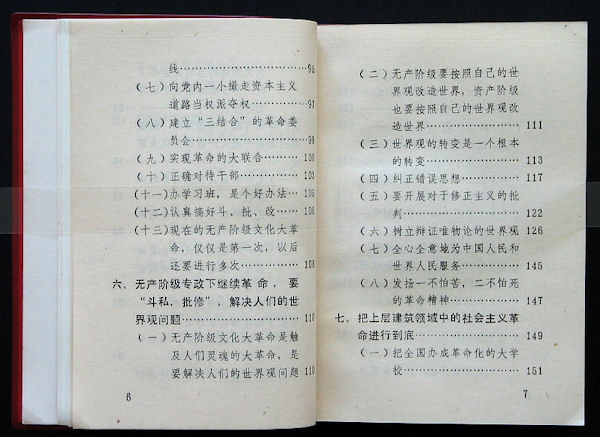 线……………………………95
（七）向党内一小撮走资本主义
道路当权派夺权…………97
（八）建立“三结合”的革命委
员会………………………98
（九）实现革命的大联合………100
（十）正确对待干部……………103
（十一）办学习班，是个好办法…106
（十二）认真搞好斗、批、改……106
（十三）现在的无产阶级文化大革
命，仅仅是第一次，以后
还要进行多次……………108
六、无产阶级专政下继续革命，要
“斗私，批修”，解决人们的世
界观问题……………………110
（一）无产阶级文化大革命是触
及人们灵魂的大革命，是
要解决人们的世界观问题 110
6
（二）无产阶级要按照自己的世
界观改造世界，资产阶级
也要按照自己的世界观改
造世界……………………111
（三）世界观的转变是一个根本
的转变……………………113
（四）纠正错误思想……………117
（五）要开展对于修正主义的批
判…………………………122
（六）树立辩证唯物论的世界观 126
（七）全心全意地为中国人民和
世界人民服务……………145
（八）发扬一不怕苦，二不怕死
的革命精神………………147
七、把上层建筑领域中的社会主义革
命进行到底…………………149
（一）把全国办成革命化的大学
校…………………………151
7